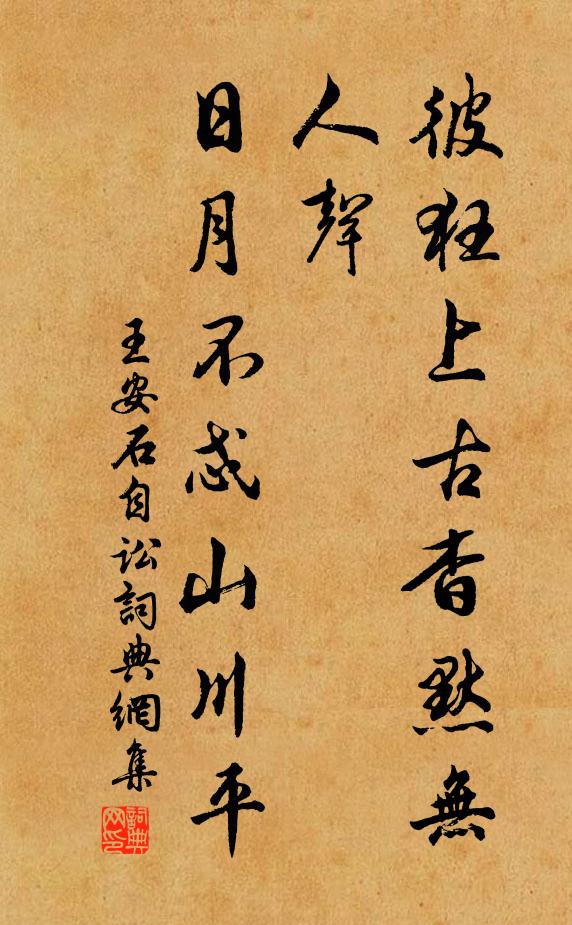 彼狂上古杳默無
人聲
日月不忒山川平
王安石自訟詞典網集
詞典
网印